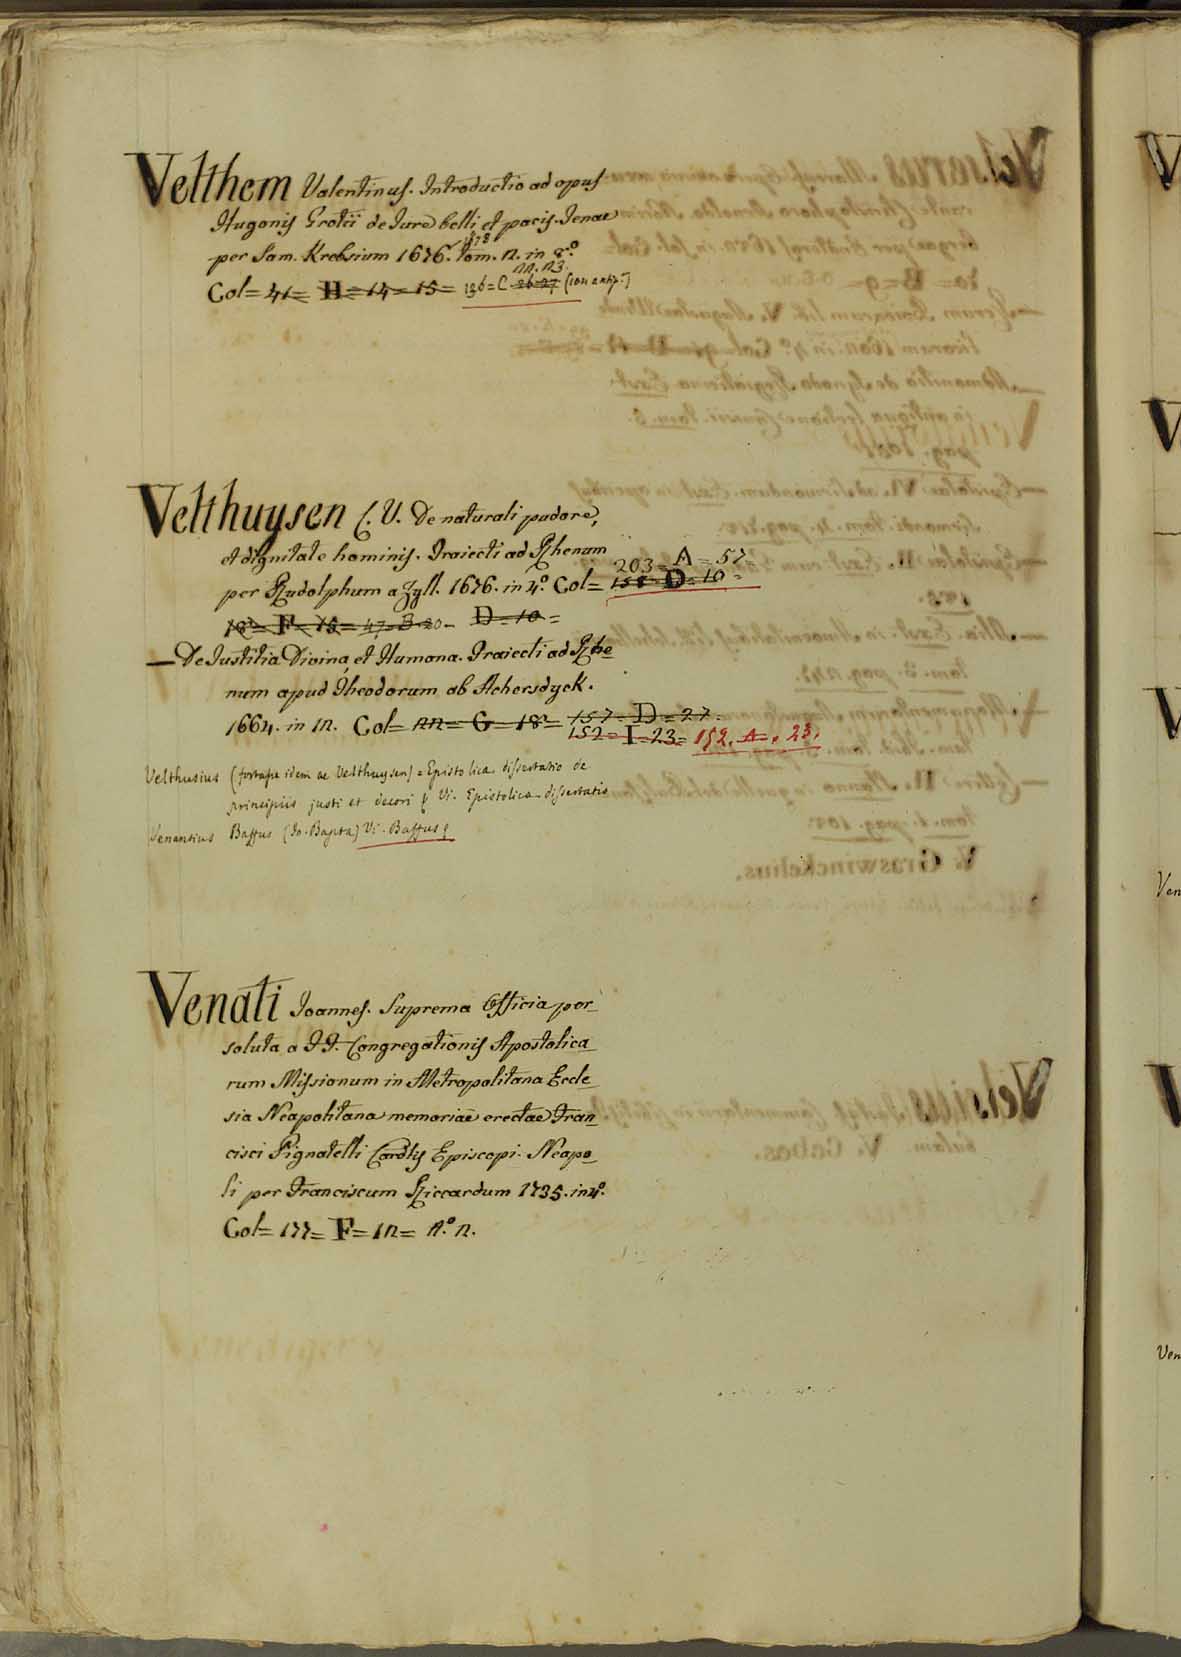 Velthem Valentinus. Introductio ad opus
Hugonis Grotii de Jure belli et pacis. Jenae
1678
per Sam. Krebsium 1676. tom. 2. in 8.º
22. 23.
Col= 41= H= 14= 15= 136= C 26 27
Velthuysen C. V. De naturali pudore,
et dignitate hominis. Traiecti ad Rhenum
203= A= 57
per Rudolphum a Zyll. 1676. in 4.º Col= 158= D= 10=
F= 15= 47= B 20= D= 10=
— De Justitia Divina, et Humana. Traiecti ad Rhe=
num apud Theodorum ab Ackersdyck.
1664. in 12. Col= 22= G= 18= 157= D= 27.
152= I= 23= 152. A. 23.
Velthusius (fortasse idem ac Velthuysen) = Epistolica dissertatio de
principiis justi et decori Vi. Epistolica dissertatio
Venantius Baffus (Jo. Bapta) Vi. Baffus
Venati Joannes. Suprema Officia per=
soluta a PP. Congregationis Apostolica=
rum Missionum in Metropolitana Eccle=
sia Neapolitana memoriae erectae Fran=
cisci Pignatelli Cardlis Episcopi. Neapo=
li per Franciscum Ricciardum 1735. in 4.º
Col= 177= F= 12= n.º 2.
Ven
Ven